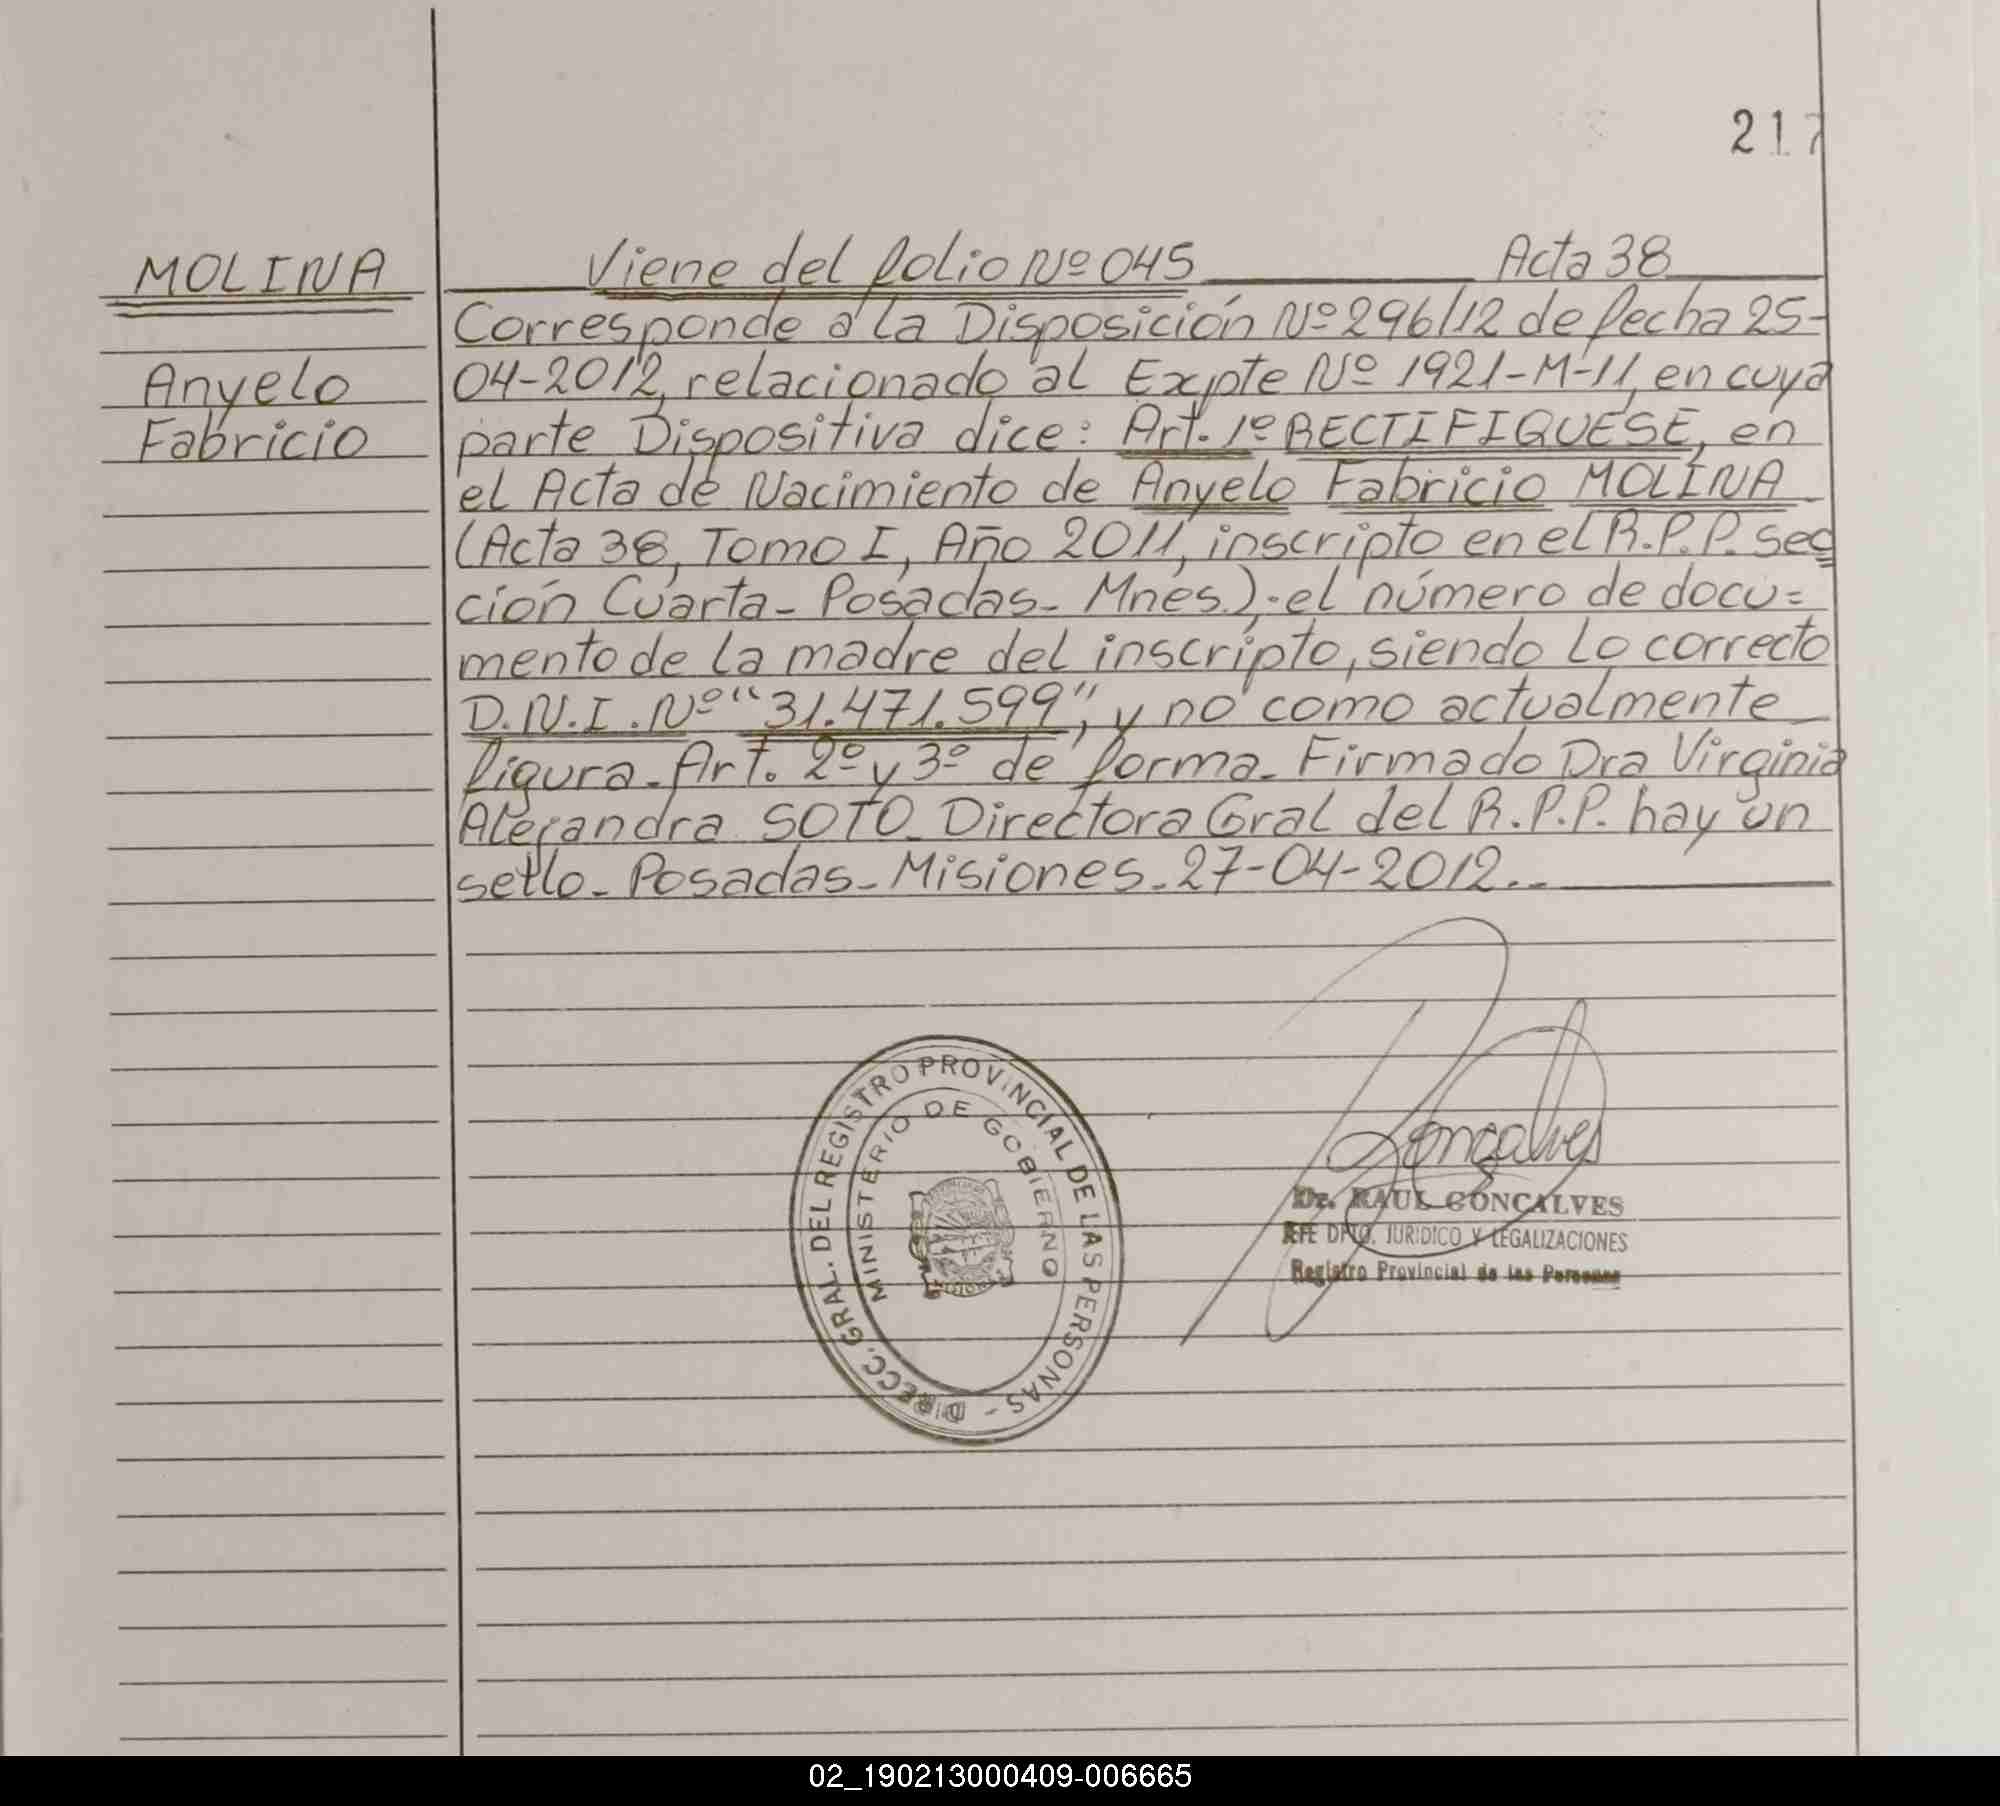 217
MOLINA
Anyelo
Fabricio
Viene del folio Nº 045 Acta 38
Corresponde a la Disposición Nº 296/12 de fecha 25-
04-2012, relacionado al Expte Nº 1921-M-11, en cuya
parte Dispositiva dice: Art. 1º RECTIFIQUESE, en
el Acta de Nacimiento de Anyelo Fabricio MOLINA
(Acta 38, Tomo I, Año 2011, inscripto en el R.P.P. Sec
ción Cuarta- Posadas- Mnes.)-el número de docu=
mento de la madre del inscripto, siendo lo correcto
D.N.I. Nº "31.471.599", y no como actualmente
figura. Art. 2º y 3º de forma. Firmado Dra Virginia
Alejandra SOTO. Directora Gral del R.P.P. hay un
sello- Posadas- Misiones- 27-04-2012.-
DIRECC. GRAL. DEL REGISTRO PROVINCIAL DE LAS PERSONAS -
MINISTERIO DE GOBIERNO
Gonçalves
Dr. RAUL GONCALVES
JEFE DPTO. JURIDICO Y LEGALIZACIONES
Registro Provincial de las Personas
02_190213000409-006665